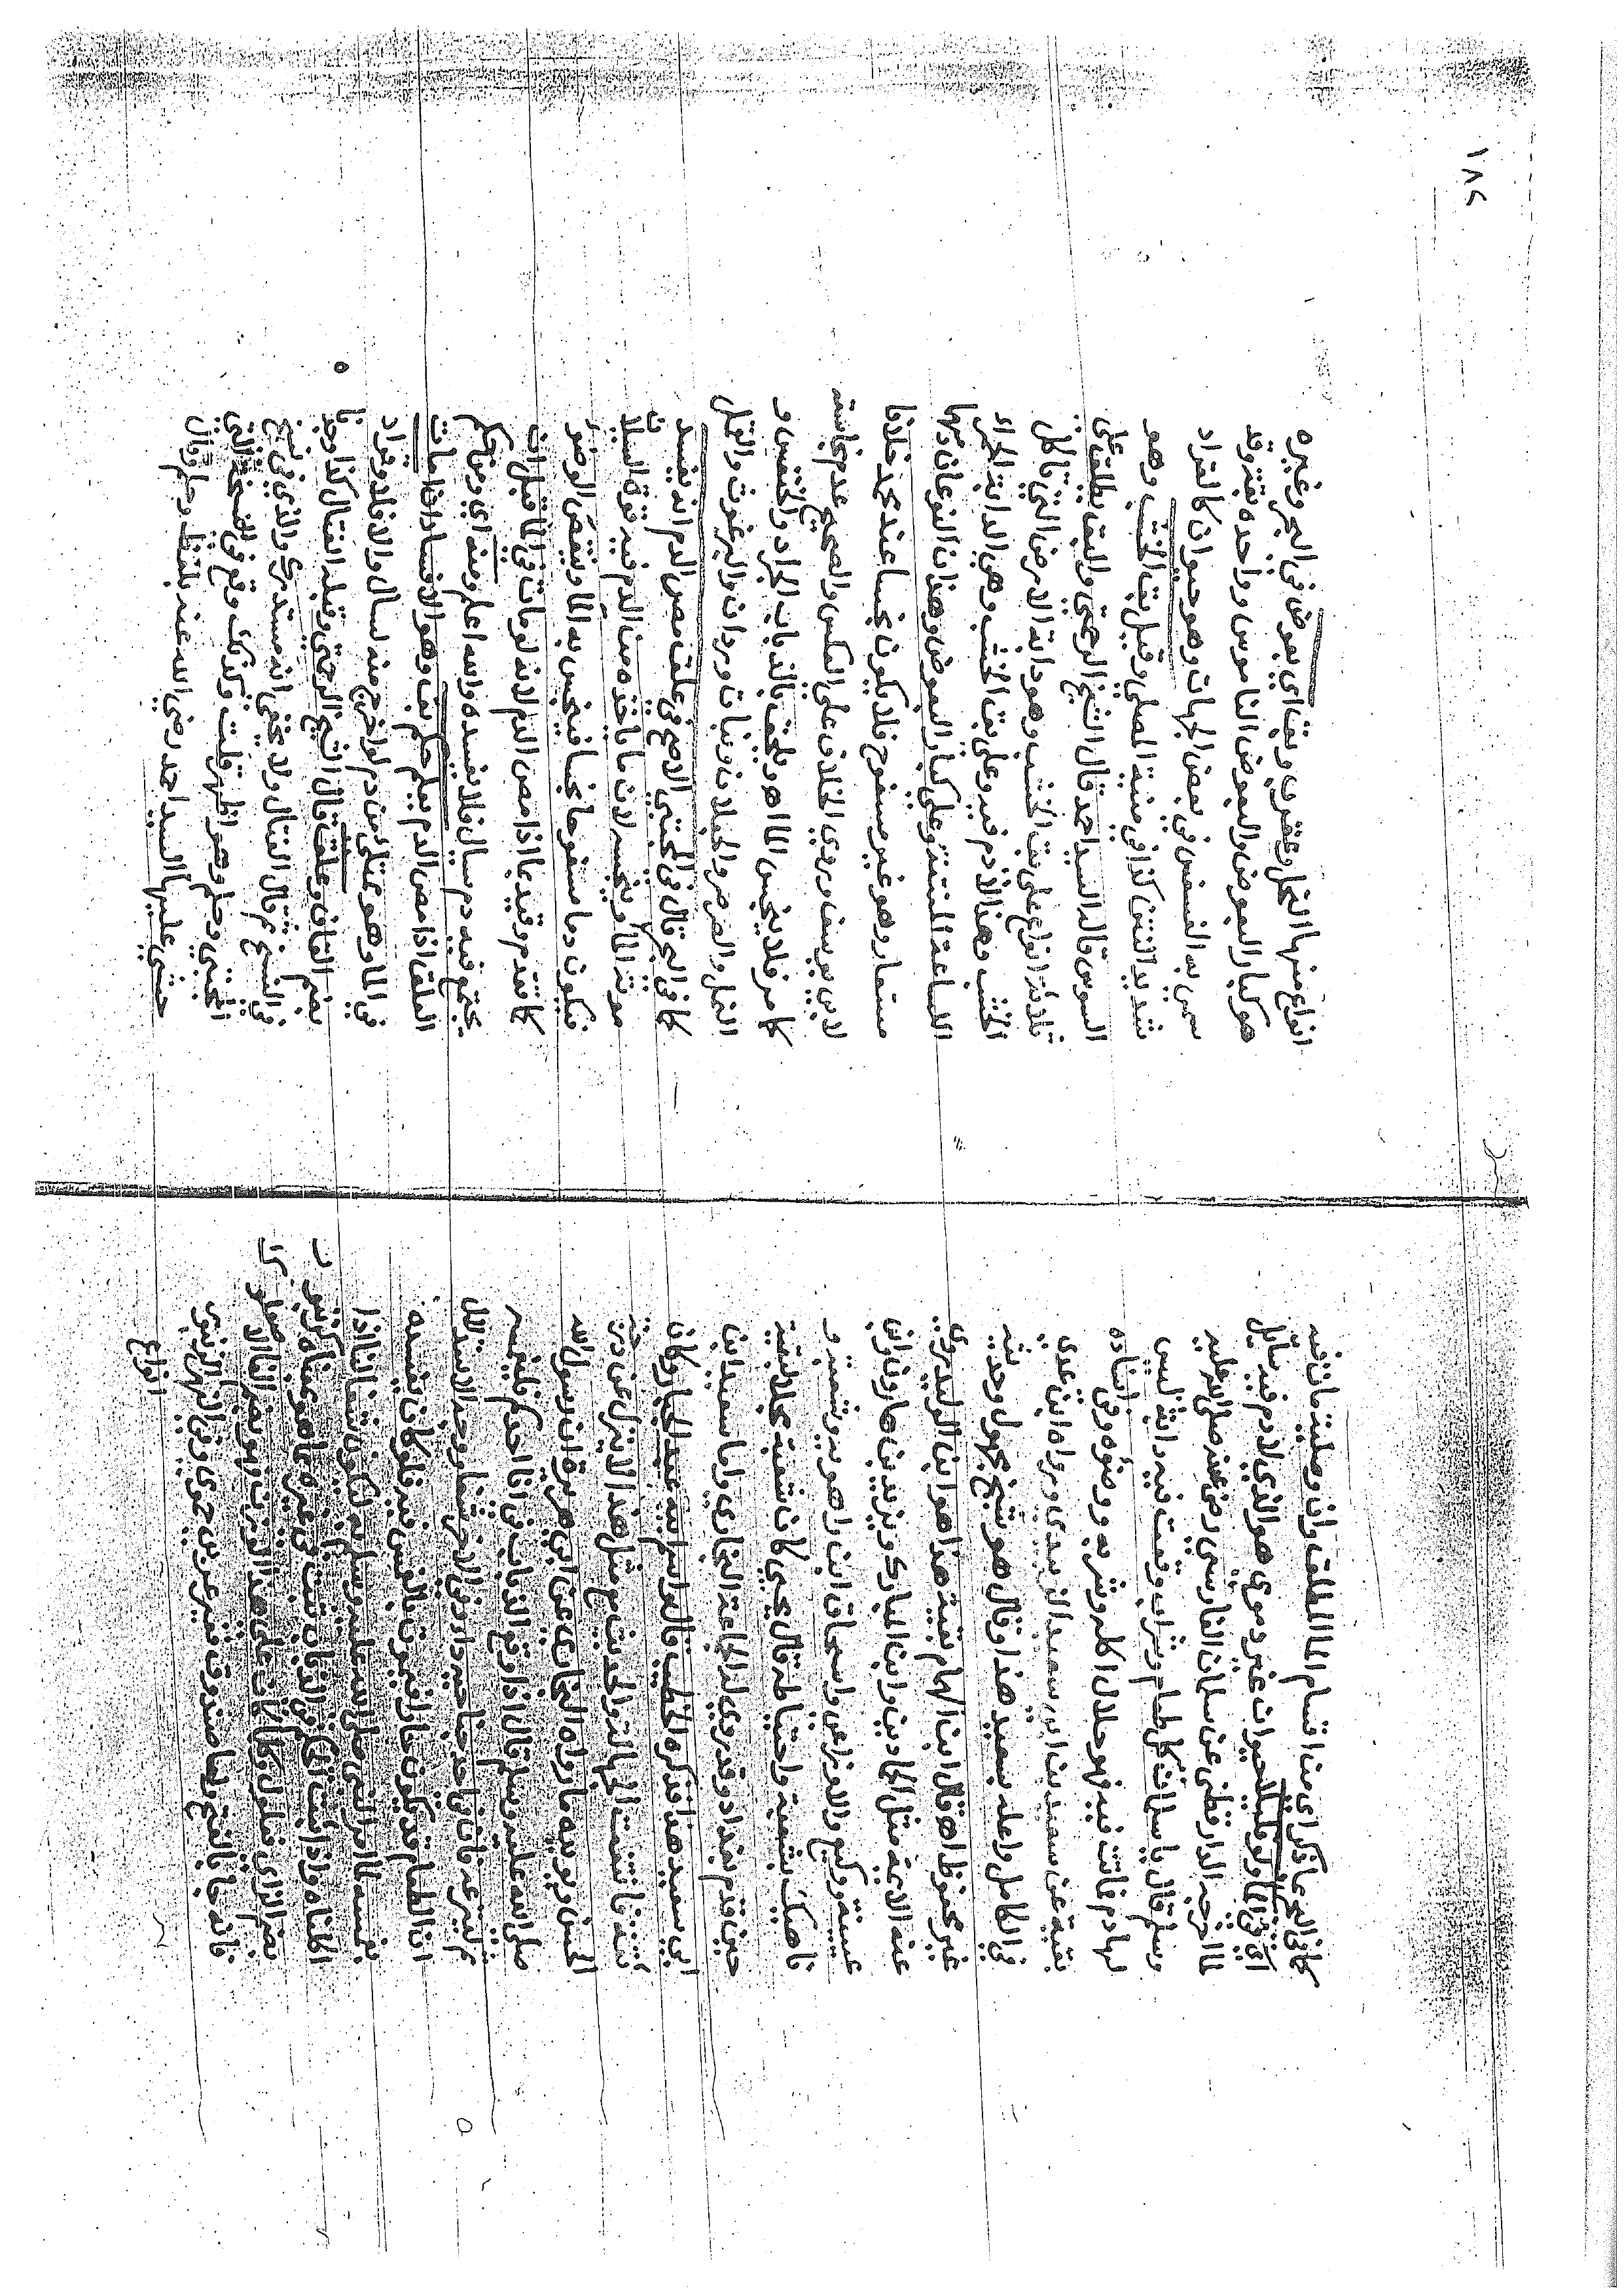 كما في البحر مما ذكر اي من اقسام الماء المطلق وان وصلية مات فيه
اي في الماء ولو قليلا حيوان غير دموي هو الذي لا دم فيه سائل
لما اخرجه الدارقطني عن سلمان الفارسي رضي عنه صلى الله عليه
وسلم قال يا سلمان كل طعام وشراب وقعت فيه دابة ليس
لها دم فماتت فيه فهو حلال اكله وشربه ووضوءه وفي اسناده
بقية عن سعيد بن ابي سعيد الزبيدي ورواه ابن عدي
في الكامل واعله بسعيد هذا وقال هو شيخ مجهول وحديثه
غير محفوظ اهـ قال ابن الهمام بقية هذا هو ابن الوليد روى
عنه الائمة مثل الحمادين وابن المبارك ويزيد بن هارون وابن
عيينة ووكيع والاوزاعي واسحاق ابن راهويه وشعبة و
ناهيك بشعبة واحتياطه قال يحيى كان شعبة مبجلا لبقية
حين قدم بغداد وقد روى له الجماعة الا البخاري واما سعيد ابن
ابي سعيد هذا فذكره الخطيب قال واسم ابيه عبد الجبار وكان
ثقة فانتفت الجهالة والحديث مع مثل هذا لا ينزل عن درجة
الحسن ويؤيده ما رواه البخاري عن ابي هريرة ان رسول الله
صلى الله عليه وسلم قال اذا وقع الذباب في اناء احدكم فليغمسه
ثم لينزعه فان في احد جناحيه داء وفي الاخر شفاء وجه الاستدلال
ان الطعام قد يكون حارا فيموت بالغمس فيه فلو كان يفسده
بغمسه لما امر النبي صلى الله عليه وسلم به ليكون شفاء لنا اذا
اكلناه واذا ثبت الحكم في الذباب ثبت في غيره مما هو بمعناه كزنبور
بضم الزاي فعلول وكل ما كان على هذا الوزن فهو بضم الفاء الا صعلوك
فانه جاء بالفتح ولعا صندوق فغير عربي حموي وفي النهر الزنبور
انواع
انواع منها النحل وعقرب وبق اي بعوض في البحر وغيره
هو كبار البعوض الناموس والبعوض واحده بقة وقد
سمي به الفسفس في بعض الجهات وهو حيوان كالقراد
شديد النتن كذا في منية المصلي وقيل بق الخشب وهو
السوس قاله السيد احمد قال الشيخ الرحمتي والبق يطلق على
ثلاثة انواع على بق الخشب وهو دابة الارض التي تاكل
الخشب وهذا لا دم فيه وعلى بق الخشب وهي الدابة الحمراء
اللساعة المنتنة وعلى كبار البعوض وهذان النوعان دمها
مستعار وهو غير مسفوح فلا يكون نجسا عند محمد خلافا
لابي يوسف وروي الخلاف على العكس والصحيح عدم نجاسته
كما مر فلا ينجس الماء اهـ ويلحق بالذباب الجراد والخنفس و
النمل والصرصر والجعلان وبنات وردان والبرغوث والقمل
كما في البحر قال في المجتبى الاصح في علق مص الدم انه يفسد
موته الماء وينجسه لان ما ياخذه من الدم فيه قوة السيلان
فيكون دما مسفوحا نجسا فينجس به الماء وينقض الوضوء
كما تقدم وقيد بما اذا مص الدم لانه لو مات في الماء قبل ان
يجتمع فيه دم سيال فلا يفسده والله اعلم ومنه اي ومن حكم
العلق اذا مص الدم يعلم حكم بق وهو الافساد اذا مات
في الماء وهو ممتلئ من دم لو اخرج منه لسال والا فلا وقراد
بضم القاف وعلق قال الشيخ الرحمتي وقبله الفتال كذا وجدنا
في النسخ ثم قال الفتال ولا يخفى انه مستدرك والذي في نسخ
المجتبى وحلم وهو اظهر قلت وكذلك وقع في النسخة التي
حشى عليها السيد احمد رضي الله عنه بلفظ وحلم وقال
١٨٤